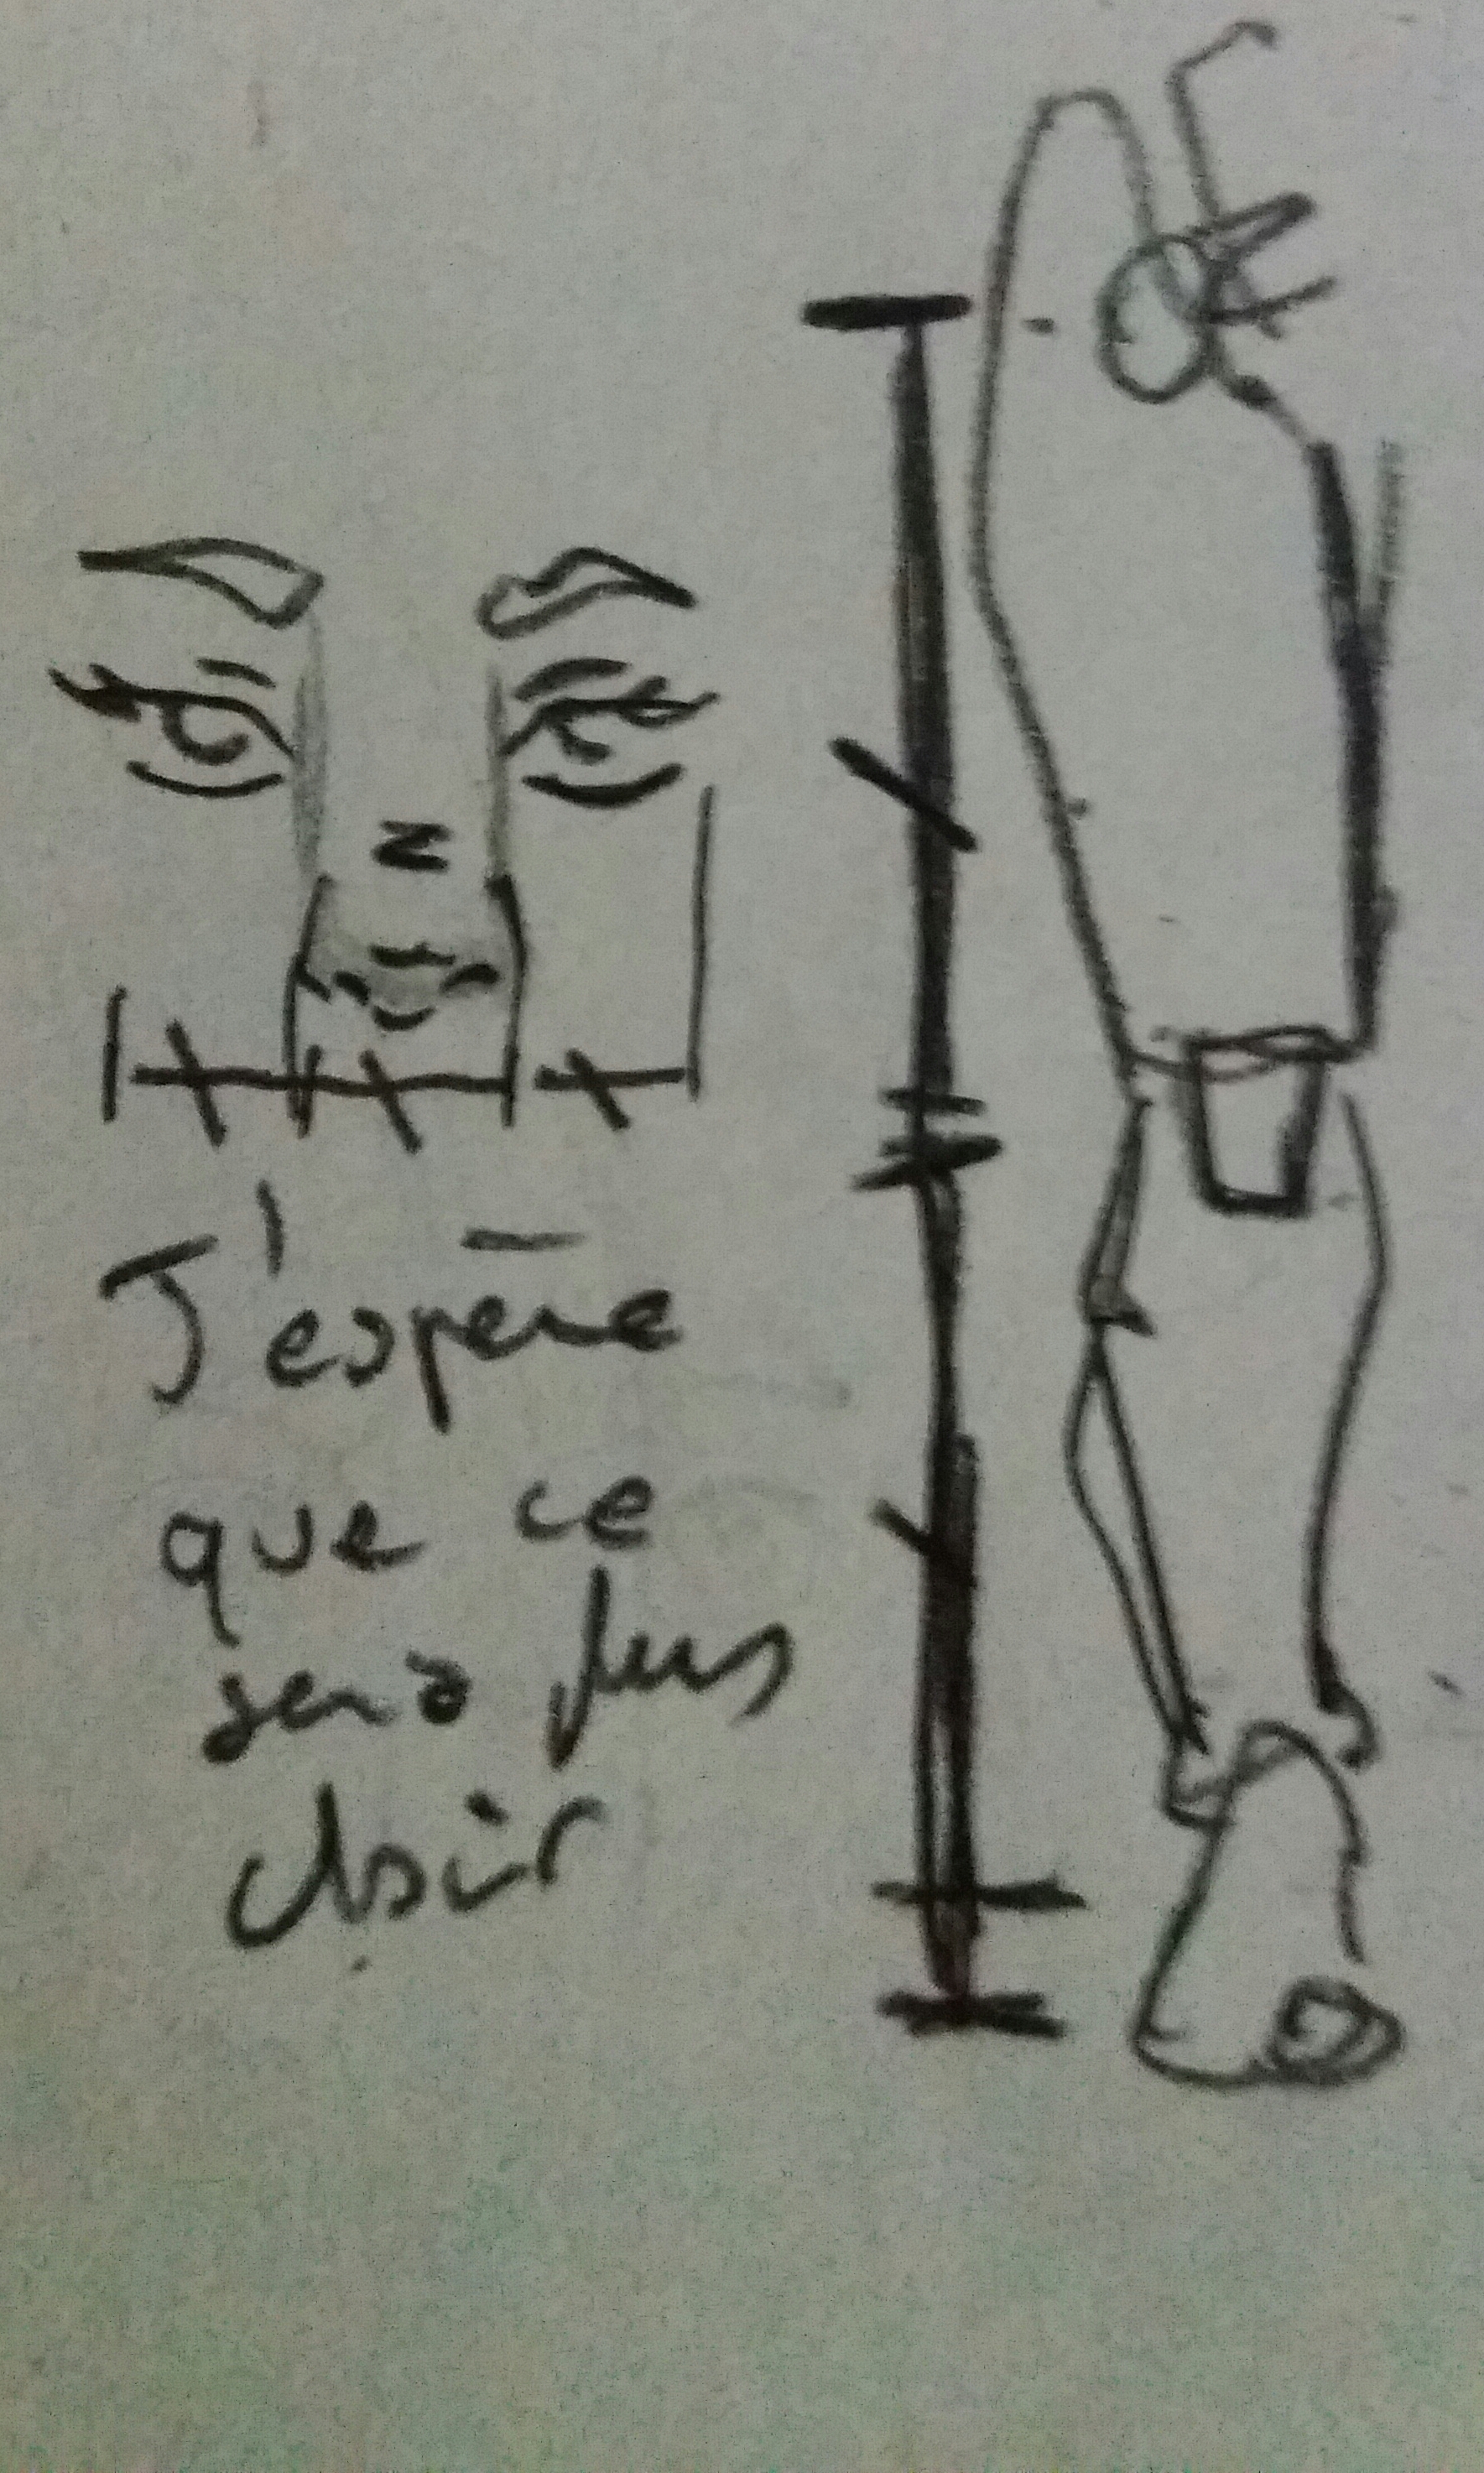 J'espère
que ce
sera plus
clair